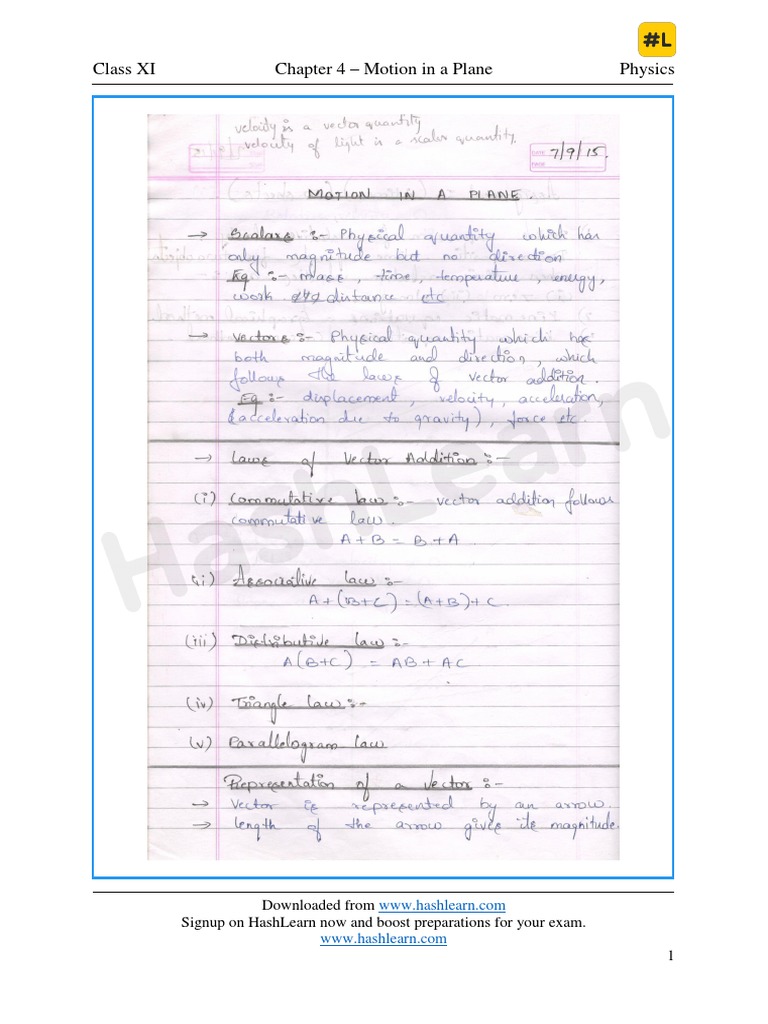 #L
Class XI Chapter 4 – Motion in a Plane Physics
velocity is a vector quantity
velocity of light is a scaler quantity.
DATE: 7/9/15.
PAGE:
MOTION IN A PLANE.
→ Scalars :- Physical quantity which has
only magnitude but no direction
Eg :- mass, time, temperature, energy,
work distance etc
→ Vectors :- Physical quantity which has
both magnitude and direction, which
follows the laws of vector addition.
Eg :- displacement, velocity, acceleration,
(acceleration due to gravity), force etc.
→ Laws of Vector Addition :-
(i) Commutative law :- vector addition follows
commutative law.
A + B = B + A
(ii) Associative law :-
A + (B+C) = (A+B) + C.
(iii) Distributive law :-
A(B+C) = AB + AC
(iv) Triangle law :-
(v) Parallelogram law
Representation of a Vector :-
→ Vector is represented by an arrow.
→ length of the arrow gives its magnitude.
HashLearn
Downloaded from www.hashlearn.com
Signup on HashLearn now and boost preparations for your exam.
www.hashlearn.com
1